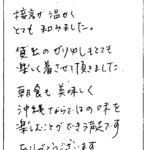 接客が温かく
とても和みました。
貸出のかりゆしもとても
楽しく着させて頂きました
朝食も美味しく
沖縄ならではの味を
楽しむことができ満足です
ありがとうございます